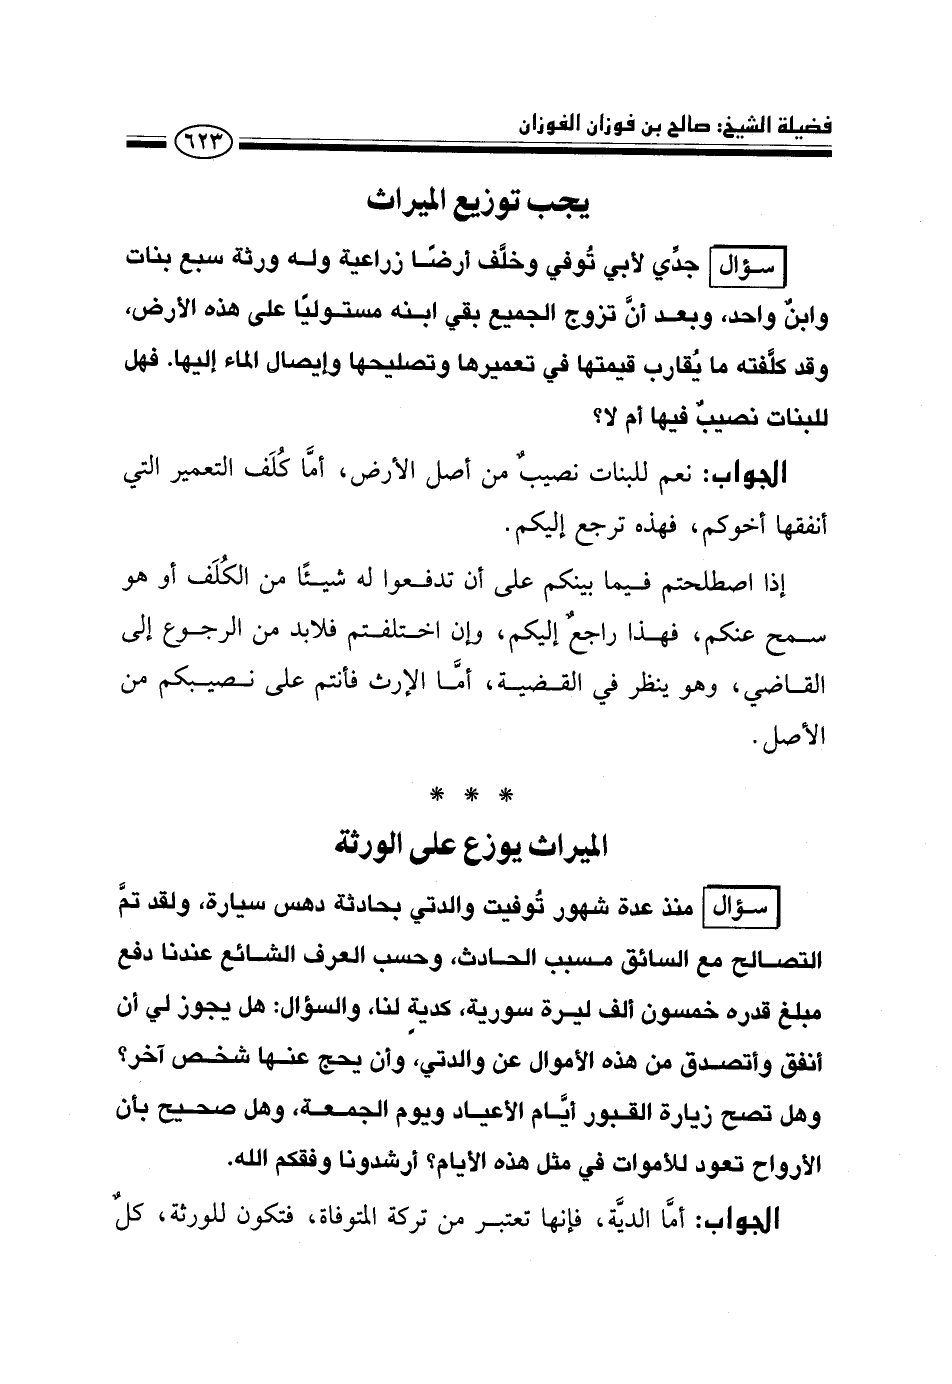 فضيلة الشيخ: صالح بن فوزان الفوزان
٦٢٣
يجب توزيع الميراث
سؤال جدِّي لأبي تُوفي وخلَّف أرضًا زراعية وله ورثة سبع بنات
وابنٌ واحد، وبعد أنَّ تزوج الجميع بقي ابنه مستوليًا على هذه الأرض،
وقد كلَّفته ما يُقارب قيمتها في تعميرها وتصليحها وإيصال الماء إليها. فهل
للبنات نصيبٌ فيها أم لا؟
الجواب: نعم للبنات نصيبٌ من أصل الأرض، أمَّا كُلَف التعمير التي
أنفقها أخوكم، فهذه ترجع إليكم.
إذا اصطلحتم فيما بينكم على أن تدفعوا له شيئًا من الكُلَف أو هو
سمح عنكم، فهذا راجعٌ إليكم، وإن اختلفتم فلابد من الرجوع إلى
القاضي، وهو ينظر في القضية، أمَّا الإرث فأنتم على نصيبكم من
الأصل.
* * *
الميراث يوزع على الورثة
سؤال منذ عدة شهور تُوفيت والدتي بحادثة دهس سيارة، ولقد تمَّ
التصالح مع السائق مسبب الحادث، وحسب العرف الشائع عندنا دفع
مبلغ قدره خمسون ألف ليرة سورية، كدية لنا، والسؤال: هل يجوز لي أن
أنفق وأتصدق من هذه الأموال عن والدتي، وأن يحج عنها شخص آخر؟
وهل تصح زيارة القبور أيَّام الأعياد ويوم الجمعة، وهل صحيح بأن
الأرواح تعود للأموات في مثل هذه الأيام؟ أرشدونا وفقكم الله.
الجواب: أمَّا الديَّة، فإنها تعتبر من تركة المتوفاة، فتكون للورثة، كلٌ